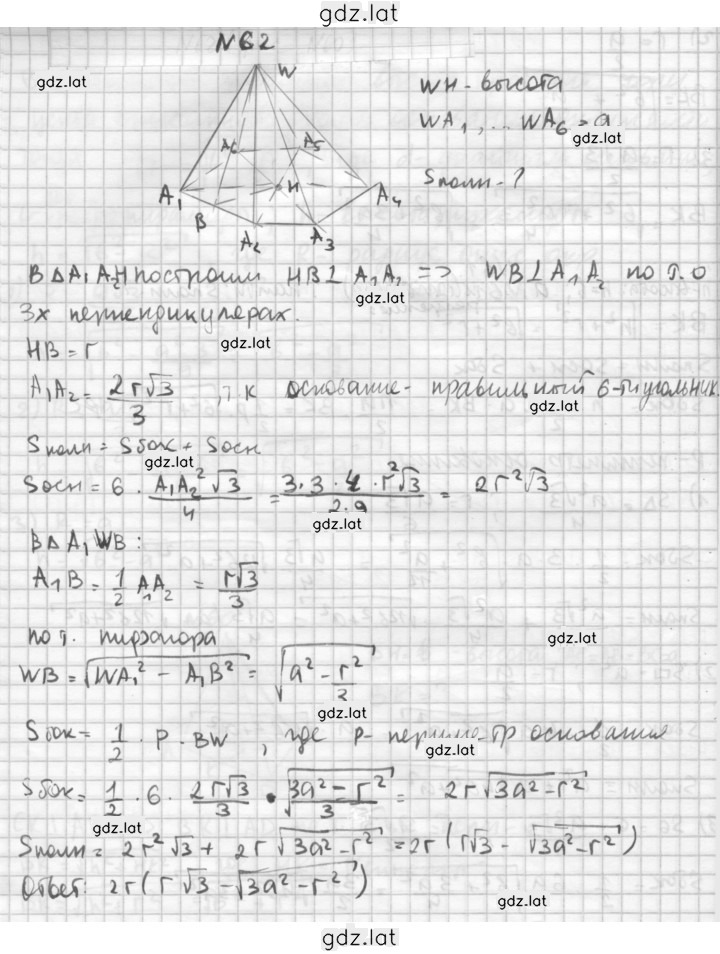 gdz.lat
N62
gdz.lat
W
WH - высота
WA₁, ... WA₆ = a
gdz.lat
Sполн - ?
A₆
A₅
A₁
H
A₄
B
A₂
A₃
В Δ A₁A₂H построим HB ⊥ A₁A₂ => WB ⊥ A₁A₂ по т. о
gdz.lat
3х перпендикулярах.
gdz.lat
HB = r
A₁A₂ = 2r√3/3, т.к основание - правильный 6-тиугольник.
gdz.lat
Sполн = Sбок + Sосн
gdz.lat
Sосн = 6 · A₁A₂²√3/4 = 3·3·4·r²√3/2·9 = 2r²√3
gdz.lat
В Δ A₁WB:
A₁B = 1/2 A₁A₂ = r√3/3
по т. пифагора
gdz.lat
WB = √(WA₁² - A₁B²) = √(a² - r²/3)
gdz.lat
Sбок = 1/2 · P · BW, где P - периметр основания
gdz.lat
Sбок = 1/2 · 6 · 2r√3/3 · √(3a² - r²)/3 = 2r√(3a² - r²)
gdz.lat
Sполн = 2r²√3 + 2r√(3a² - r²) = 2r(r√3 - √(3a² - r²))
Ответ: 2r(r√3 - √(3a² - r²))
gdz.lat
gdz.lat